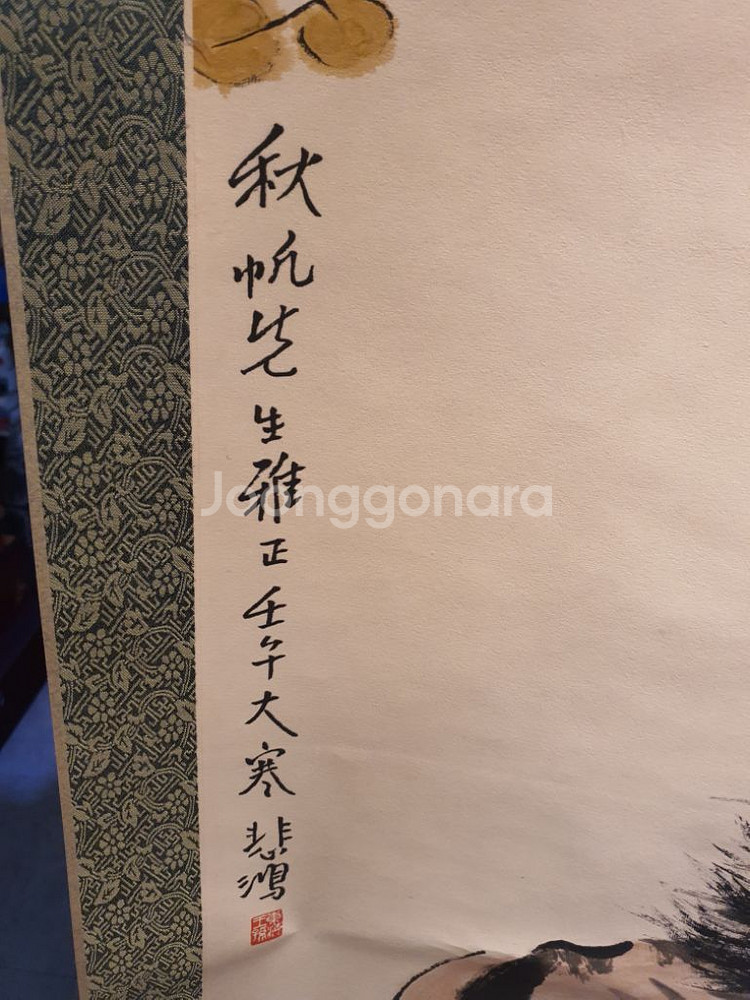 秋帆先生雅正壬午大寒悲鴻
Joonggonara